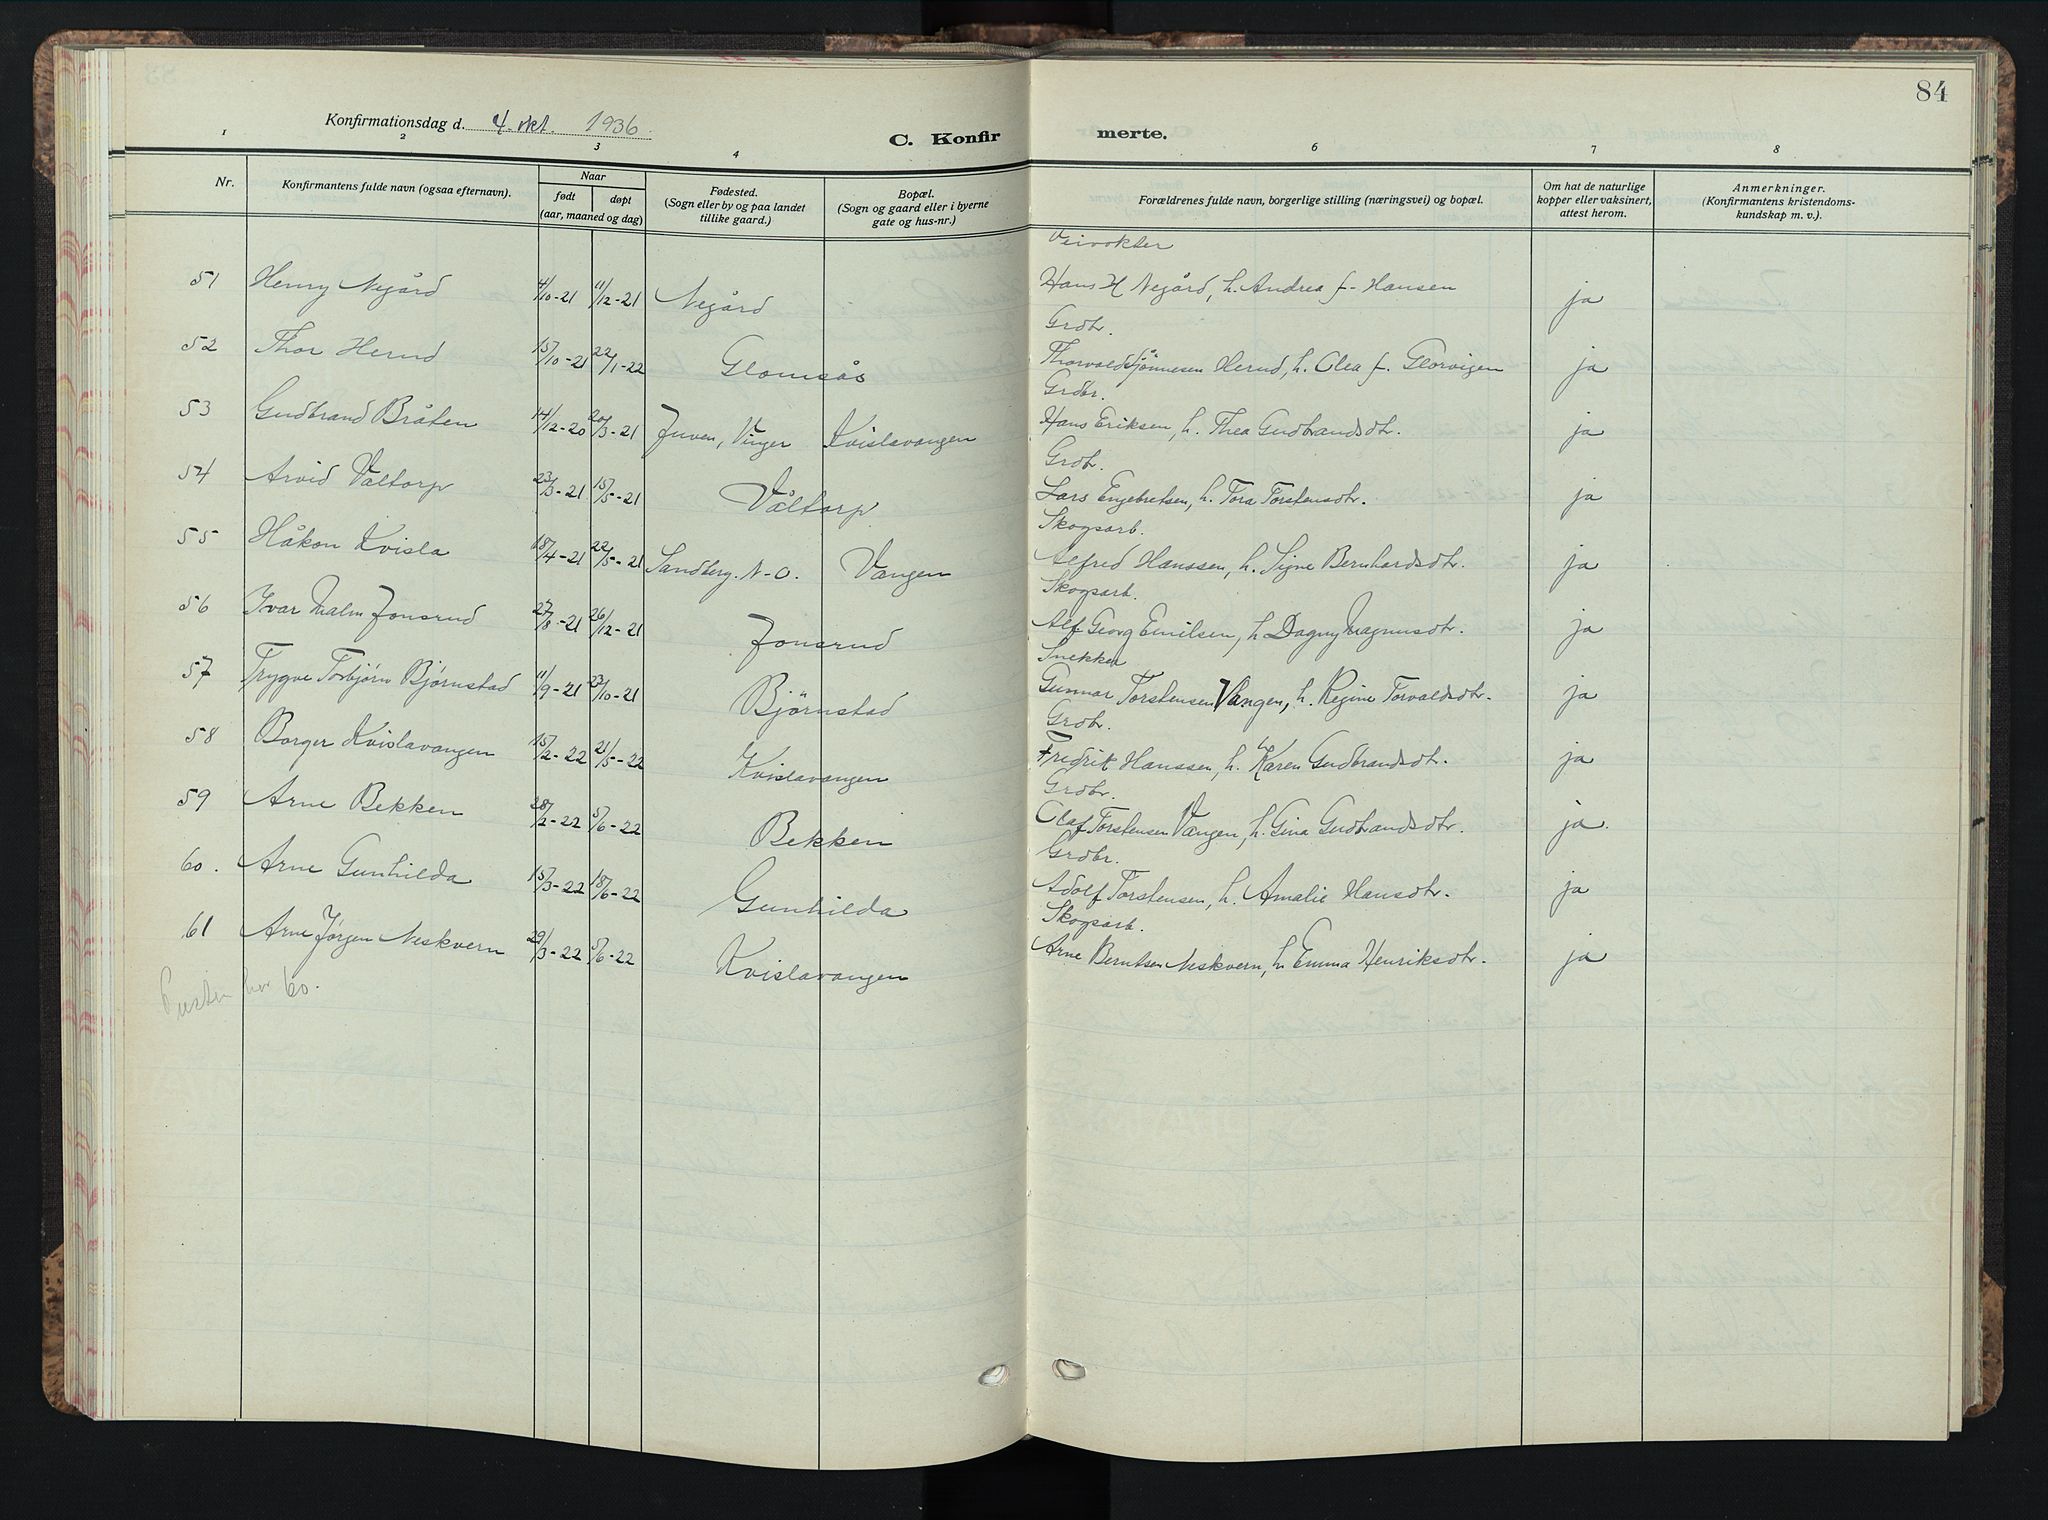 84
Konfirmationsdag d. 4. okt. 1936.
C. Konfir merte.
1 2 3 4 6 7 8
Nr.
Konfirmantens fulde navn (ogsaa efternavn).
Naar
født døpt
(aar, maaned og dag)
Fødested.
(Sogn eller by og paa landet
tillike gaard.)
Bopæl.
(Sogn og gaard eller i byerne
gate og hus-nr.)
Forældrenes fulde navn, borgerlige stilling (næringsvei) og bopæl.
Om hat de naturlige
kopper eller vaksinert,
attest herom.
Anmerkninger.
(Konfirmantens kristendoms-
kundskap m. v.).
Veivokter
51 Henry Negård 4/10-21 11/12-21 Negård Hans H Negård, h. Andrea f. Hansen ja
Grdbr.
52 Thor Herud 15/10-21 22/1-22 Glomsås Thorvald Jönnesen Herud, h. Olea f. Glorvigen ja
Grdbr.
53 Gudbrand Bråten 14/12-20 20/3-21 Juven, Vinger Kvislavangen Hans Eriksen, h. Thea Gudbrandsdtr. ja
Grdbr.
54 Arvid Våltorp 23/3-21 15/5-21 Våltorp Lars Engebretsen, h. Tora Torstensdtr. ja
Skogsarb.
55 Håkon Kvisla 18/4-21 22/5-21 Sandberg. N-O. Vangen Alfred Hanssen, h. Signe Bernhardsdtr. ja
Skogsarb.
56 Ivar Malm Jonsrud 27/8-21 26/12-21 Jonsrud Alf Georg Emilsen, h Dagny Magnusdtr. ja
Snekker
57 Trygve Torbjørn Bjørnstad 11/9-21 23/10-21 Bjørnstad Gunnar Torstensen Vangen, h. Regine Torvaldsdtr. ja
Grdbr.
58 Borger Kvislavangen 15/2-22 21/5-22 Kvislavangen Fredrik Hanssen, h. Karen Gudbrandsdtr. ja
Grdbr.
59 Arne Bekken 28/2-22 5/6-22 Bekken Olaf Torstensen Vangen, h. Gina Gudbrandsdtr. ja.
Grdbr.
60. Arne Gunhilda 15/3-22 18/6-22 Gunhilda Adolf Torstensen, h. Amalie Hansdtr. ja
Skogsarb.
61 Arne Jørgen Neskvern 29/3-22 5/6-22 Kvislavangen Arne Berntsen Neskvern, h Emma Henriksdtr. ja
har 60.